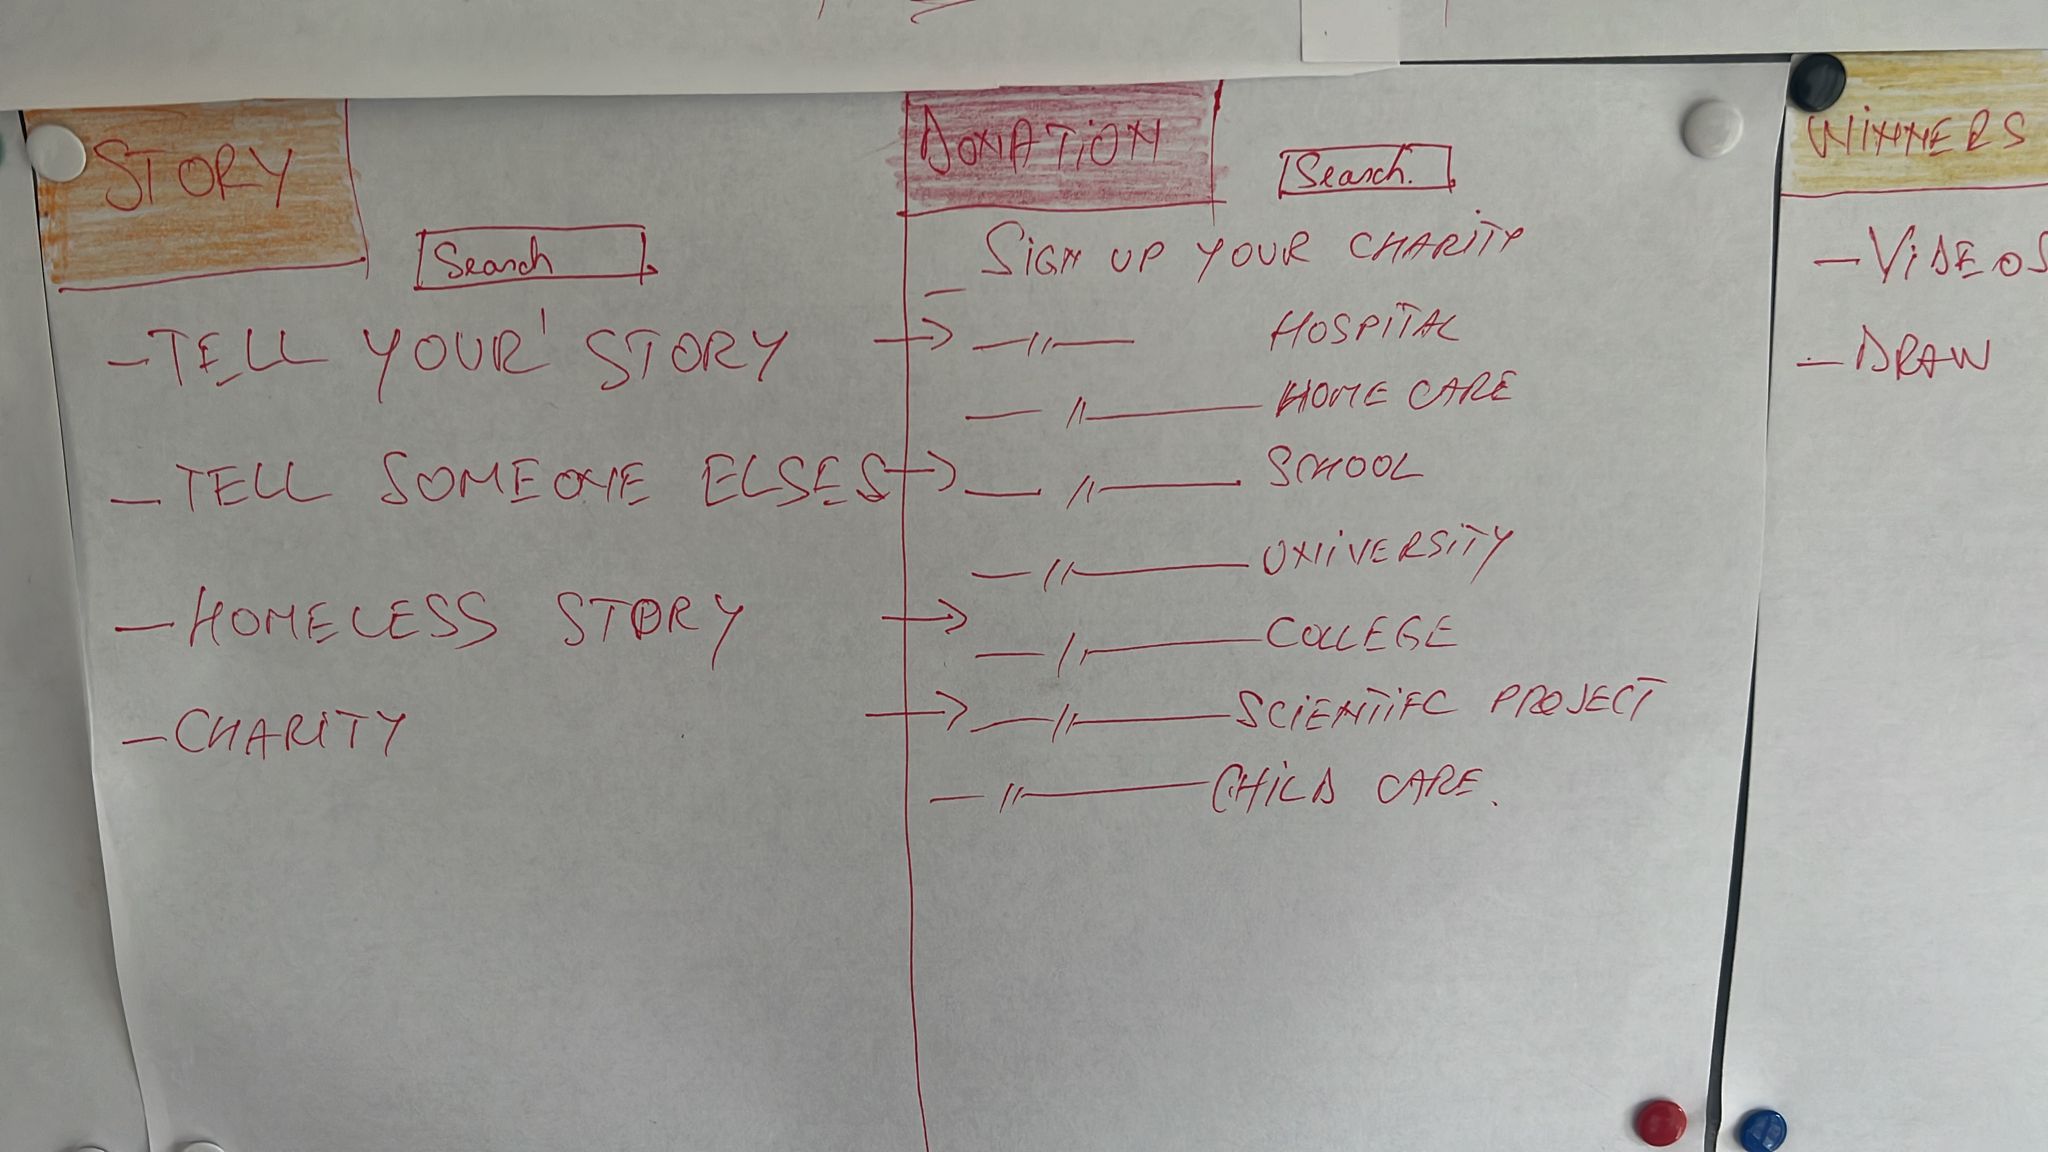 STORY
Search
- TELL YOUR STORY →
- TELL SOMEONE ELSES →
- HOMELESS STORY →
- CHARITY →
DONATION
Search.
SIGN UP YOUR CHARITY
— 〃 — HOSPITAL
— 〃 — HOME CARE
— 〃 — SCHOOL
— 〃 — UNIVERSITY
— 〃 — COLLEGE
— 〃 — SCIENTIFC PROJECT
— 〃 — CHILD CARE.
WINNERS
- VIDEOS
- DRAW